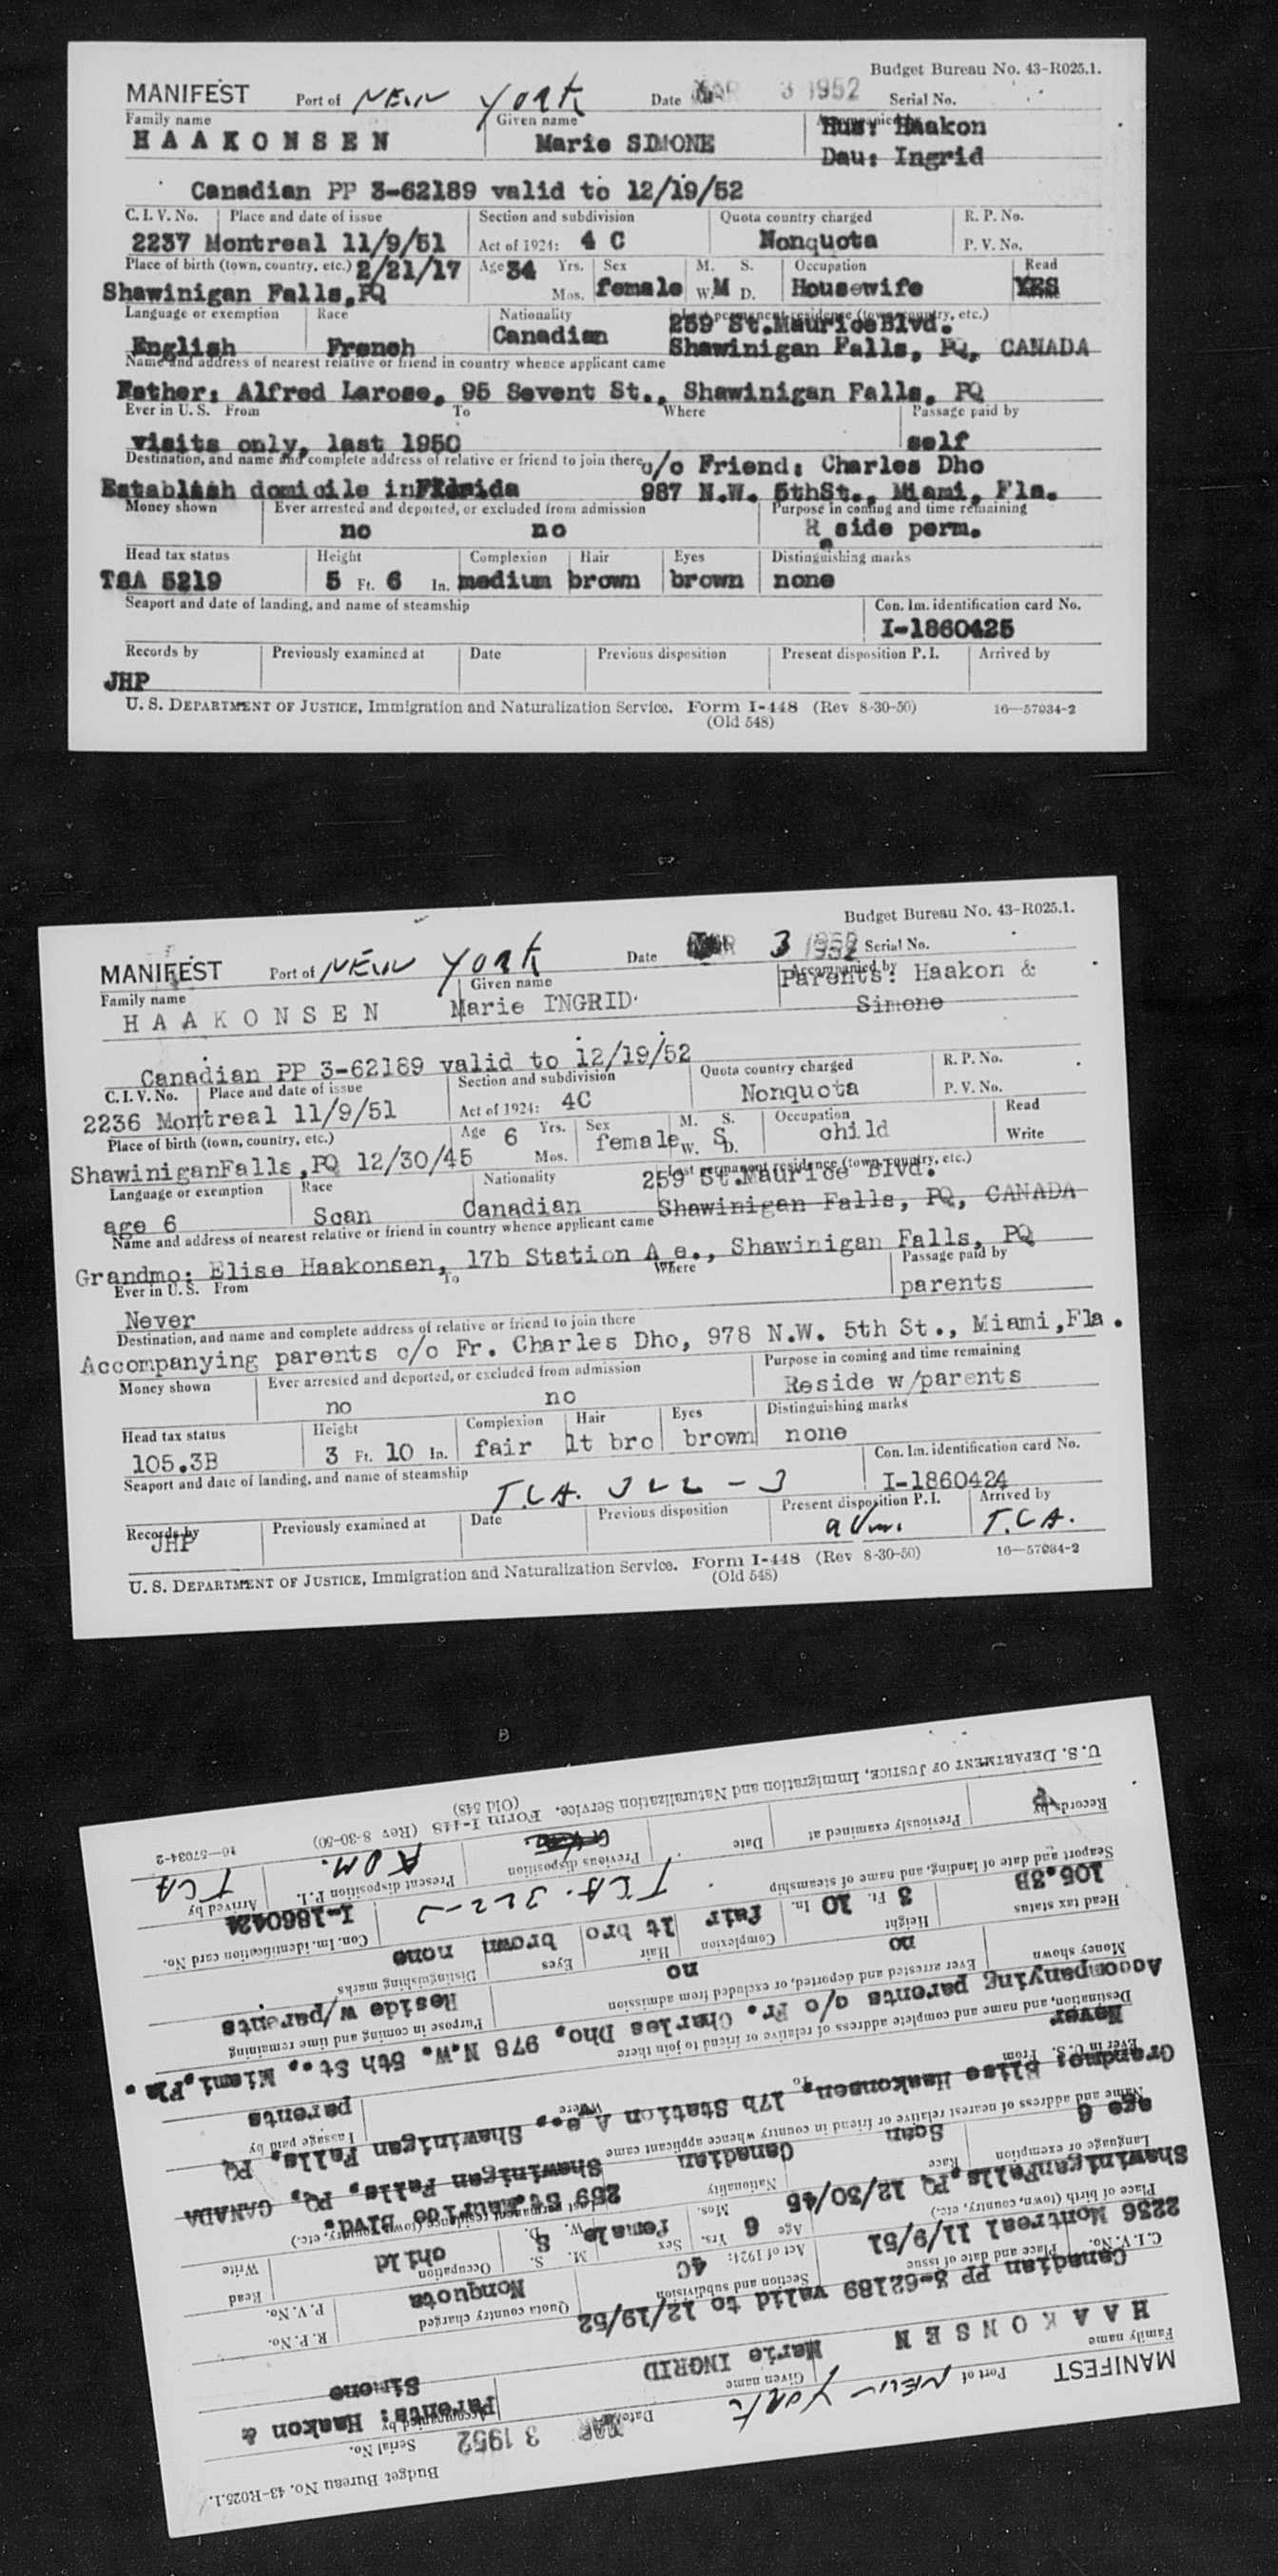 Budget Bureau No. 43-R025.1.
MANIFEST Port of NEW YORK Date MAR 3 1952 Serial No.
Family name Given name Accompanied by
HAAKONSEN Marie SIMONE Hus: Haakon
Dau: Ingrid
Canadian PP 3-62189 valid to 12/19/52
C. I. V. No. Place and date of issue Section and subdivision Quota country charged R. P. No.
2237 Montreal 11/9/51 Act of 1924: 4 C Nonquota P. V. No.
Place of birth (town, country, etc.) 2/21/17 Age 34 Yrs. Sex M. S. Occupation Read
Shawinigan Falls,PQ Mos. female W. M D. Housewife YES
Language or exemption Race Nationality Last permanent residence (town, country, etc.)
259 St.MauriceBlvd.
English French Canadian Shawinigan Falls, PQ, CANADA
Name and address of nearest relative or friend in country whence applicant came
Father: Alfred Larose, 95 Sevent St., Shawinigan Falls, PQ
Ever in U. S. From To Where Passage paid by
visits only, last 1950 self
Destination, and name and complete address of relative or friend to join there c/o Friend: Charles Dho
Establish domicile inFlorida 987 N.W. 5thSt., Miami, Fla.
Money shown Ever arrested and deported, or excluded from admission Purpose in coming and time remaining
no no Reside perm.
Head tax status Height Complexion Hair Eyes Distinguishing marks
TSA 5219 5 Ft. 6 In. medium brown brown none
Seaport and date of landing, and name of steamship Con. Im. identification card No.
I-1860425
Records by Previously examined at Date Previous disposition Present disposition P. I. Arrived by
JHP
U. S. DEPARTMENT OF JUSTICE, Immigration and Naturalization Service. Form I-448 (Rev 8-30-50) 16—57034-2
(Old 548)
Budget Bureau No. 43-R025.1.
MANIFEST Port of NEW YORK Date MAR 3 1952 Serial No.
Family name Given name Accompanied by
HAAKONSEN Marie INGRID Parents: Haakon &
Simone
Canadian PP 3-62189 valid to 12/19/52
C. I. V. No. Place and date of issue Section and subdivision Quota country charged R. P. No.
2236 Montreal 11/9/51 Act of 1924: 4C Nonquota P. V. No.
Place of birth (town, country, etc.) Age 6 Yrs. Sex M. S. Occupation Read
ShawiniganFalls,PQ 12/30/45 Mos. female W. S D. child Write
Language or exemption Race Nationality Last permanent residence (town, country, etc.)
259 St.Maurice Blvd.
age 6 Scan Canadian Shawinigan Falls, PQ, CANADA
Name and address of nearest relative or friend in country whence applicant came
Grandmo: Elise Haakonsen, 17b Station A e., Shawinigan Falls, PQ
Ever in U. S. From To Where Passage paid by
Never parents
Destination, and name and complete address of relative or friend to join there
Accompanying parents c/o Fr. Charles Dho, 978 N.W. 5th St., Miami,Fla.
Money shown Ever arrested and deported, or excluded from admission Purpose in coming and time remaining
no no Reside w/parents
Head tax status Height Complexion Hair Eyes Distinguishing marks
105.3B 3 Ft. 10 In. fair lt bro brown none
Seaport and date of landing, and name of steamship Con. Im. identification card No.
T.C.A. 322-3 I-1860424
Records by Previously examined at Date Previous disposition Present disposition P. I. Arrived by
JHP T.C.A.
U. S. DEPARTMENT OF JUSTICE, Immigration and Naturalization Service. Form I-448 (Rev 8-30-50) 16—57034-2
(Old 548)
Budget Bureau No. 43-R025.1.
MANIFEST Port of NEW YORK Date MAR 3 1952 Serial No.
Family name Given name Accompanied by
HAAKONSEN Marie INGRID Parents: Haakon &
Simone
Canadian PP 3-62189 valid to 12/19/52
C. I. V. No. Place and date of issue Section and subdivision Quota country charged R. P. No.
2236 Montreal 11/9/51 Act of 1924: 4C Nonquota P. V. No.
Place of birth (town, country, etc.) Age 6 Yrs. Sex M. S. Occupation Read
ShawiniganFalls,PQ 12/30/45 Mos. female W. S D. child Write
Language or exemption Race Nationality Last permanent residence (town, country, etc.)
259 St.Maurice Blvd.
age 6 Scan Canadian Shawinigan Falls, PQ, CANADA
Name and address of nearest relative or friend in country whence applicant came
Grandmo: Elise Haakonsen, 17b Station A e., Shawinigan Falls, PQ
Ever in U. S. From To Where Passage paid by
Never parents
Destination, and name and complete address of relative or friend to join there
Accompanying parents c/o Fr. Charles Dho, 978 N.W. 5th St., Miami,Fla.
Money shown Ever arrested and deported, or excluded from admission Purpose in coming and time remaining
no no Reside w/parents
Head tax status Height Complexion Hair Eyes Distinguishing marks
105.3B 3 Ft. 10 In. fair lt bro brown none
Seaport and date of landing, and name of steamship Con. Im. identification card No.
TCA. 322-3 I-1860424
Records by Previously examined at Date Previous disposition Present disposition P. I. Arrived by
ADM. TCA
U. S. DEPARTMENT OF JUSTICE, Immigration and Naturalization Service. Form I-448 (Rev 8-30-50) 16—57034-2
(Old 548)